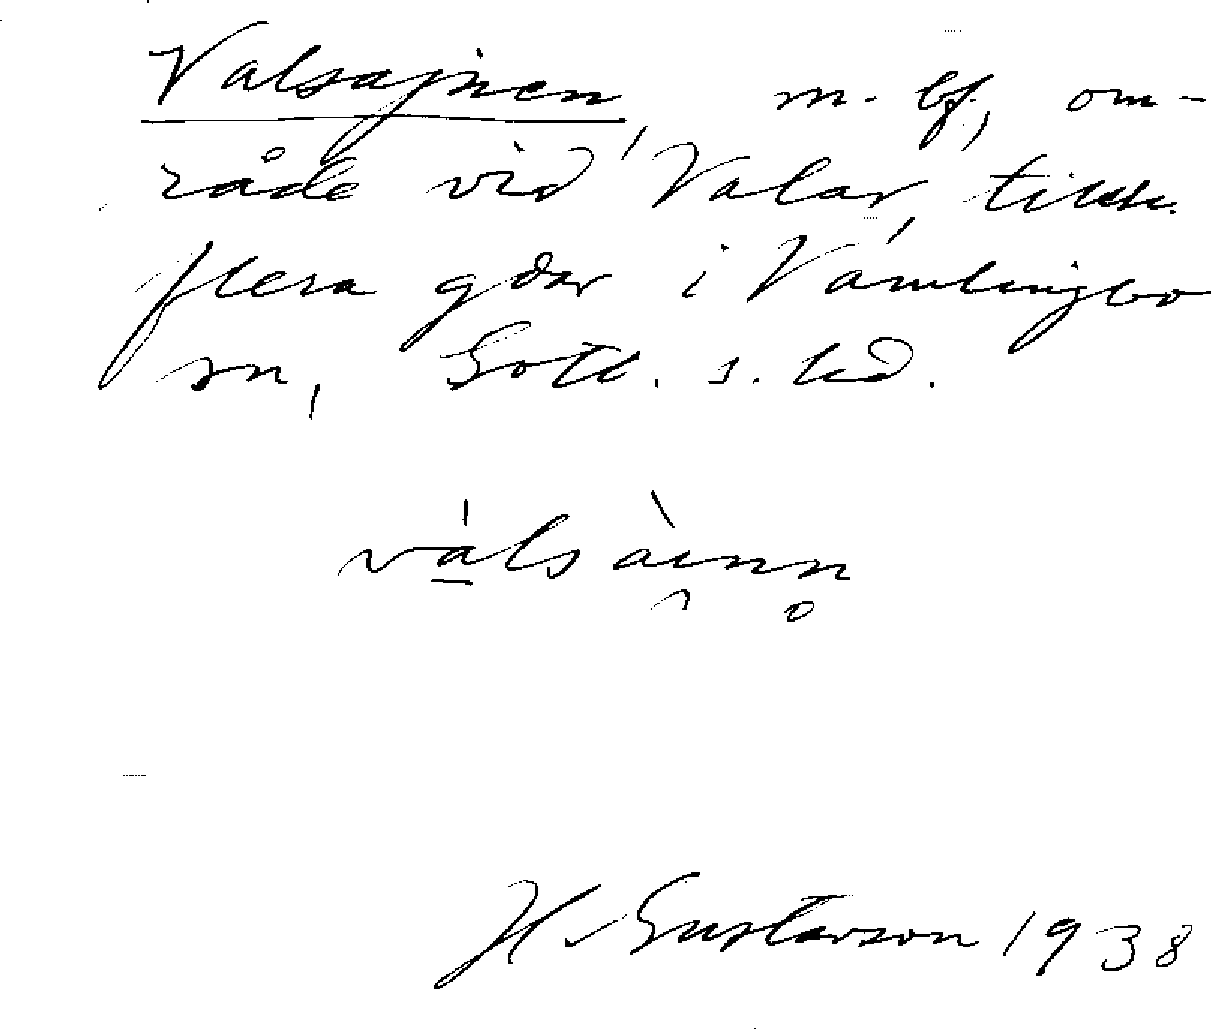 Valsajnen, m. bf., om-
råde vid Valar, tillh.
flera gdar i Vamlingbo
sn, Gotl. s. hd.
vàlsàinn
H. Gustavson 1938